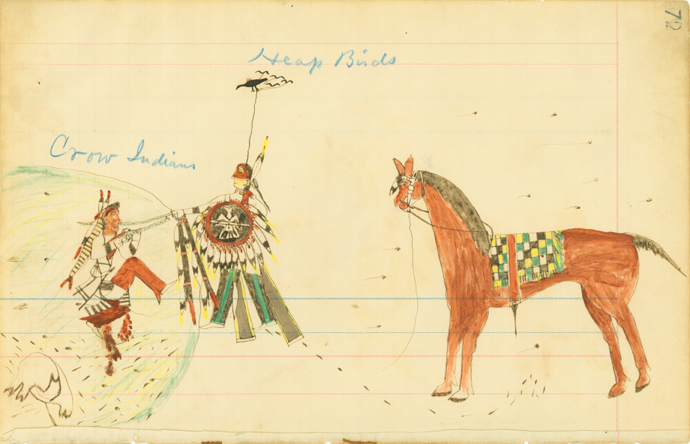 72
Heap Birds
Crow Indians